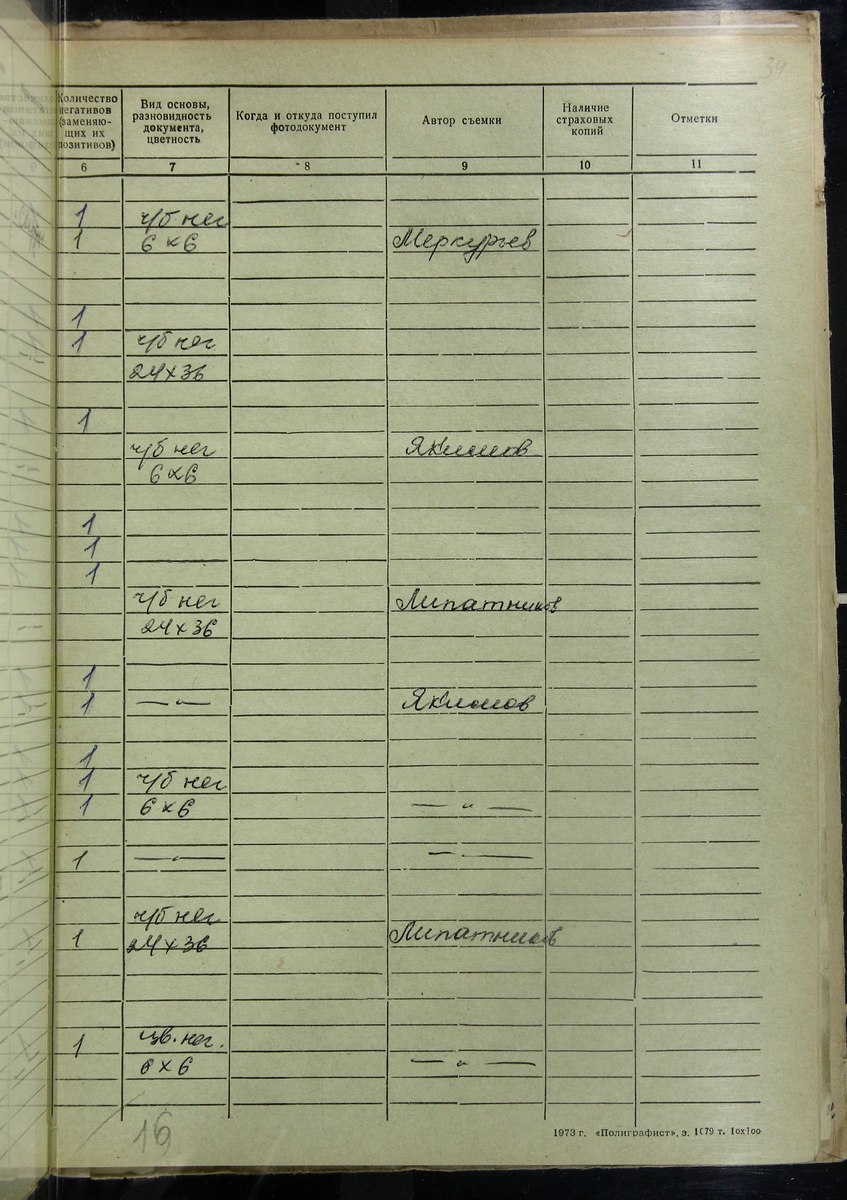 34
Количество негативов (заменяю-щих их позитивов)
Вид основы, разновидность документа, цветность
Когда и откуда поступил фотодокумент
Автор съемки
Наличие страховых копий
Отметки
6 7 8 9 10 11
1 ч/б нег
1 6×6 Меркурьев
1
1 ч/б нег
24×36
1
ч/б нег Якимов
6×6
1
1
1
ч/б нег Липатников
24×36
1
1 —"— Якимов
1
1 ч/б нег
1 6×6 —"—
1 —"— —"—
ч/б нег
1 24×36 Липатников
1 цв. нег.
6×6 —"—
16
1973 г. «Полиграфист», з. 1079 т. 10х100